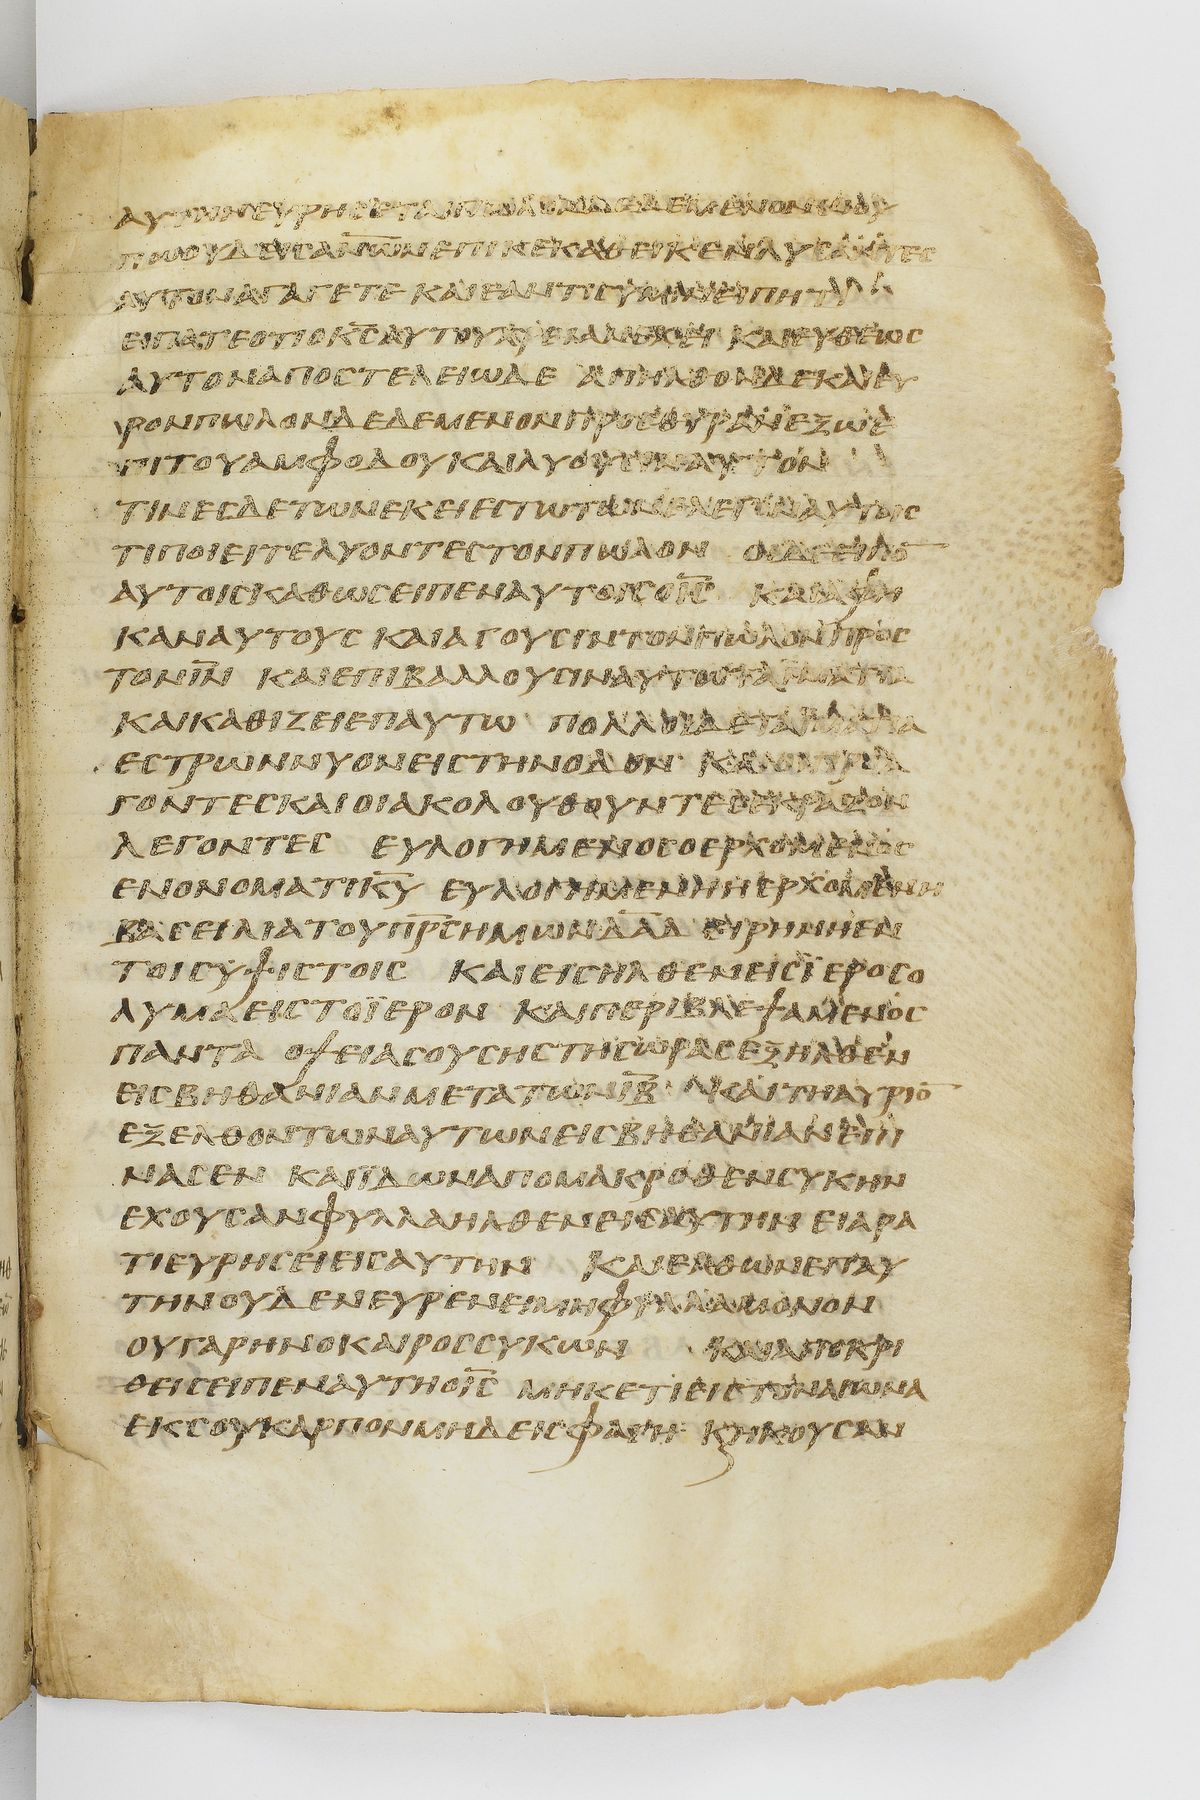 ΑΥΤΗΝΕΥΡΗΣΕΤΑΙΠΩΛΟΝΔΕΔΕΜΕΝΟΝ
ΠΩΟΥΔΕΙΣΑΝΩΝΕΠΙΚΕΚΑΘΕΙΚΕΝΛΥΣΑΝΤΕΣ
ΑΥΤΟΝΑΓΑΓΕΤΕ ΚΑΙΕΑΝΤΙΣΥΜΙΝΕΙΠΗΤΙ
ΕΙΠΑΤΕΟΤΙΟΚΣΑΥΤΟΥΧΡΕΙΑΝΕΧΕΙ ΚΑΙΕΥΘΕΩΣ
ΑΥΤΟΝΑΠΟΣΤΕΛΕΙΩΔΕ ΑΠΗΛΘΟΝΔΕΚΑΙΕΥ
ΡΟΝΠΩΛΟΝΔΕΔΕΜΕΝΟΝΠΡΟΣΘΥΡΑΝΕΞΩΕ
ΠΙΤΟΥΑΜΦΟΔΟΥΚΑΙΛΥΟΥΣΙΝΑΥΤΟΝ
ΤΙΝΕΣΔΕΤΩΝΕΚΕΙΕΣΤΩΤΩΝΕΛΕΓΟΝΑΥΤΟΙΣ
ΤΙΠΟΙΕΙΤΕΛΥΟΝΤΕΣΤΟΝΠΩΛΟΝ ΟΙΔΕΕΙΠΟ̅
ΑΥΤΟΙΣΚΑΘΩΣΕΙΠΕΝΑΥΤΟΙΣΟΙΣ̅ ΚΑΙΑΦΗ
ΚΑΝΑΥΤΟΥΣ ΚΑΙΑΓΟΥΣΙΝΤΟΝΠΩΛΟΝΠΡΟΣ
ΤΟΝΙΝ̅ ΚΑΙΕΠΙΒΑΛΛΟΥΣΙΝΑΥΤΩ
ΚΑΙΚΑΘΙΖΕΙΕΠΑΥΤΩ ΠΟΛΛΟΙΔΕΤΑΙΜΑΤΙΑ
ΕΣΤΡΩΝΝΥΟΝΕΙΣΤΗΝΟΔΟΝ ΚΑΙΟΙΠΡΟΑ
ΓΟΝΤΕΣΚΑΙΟΙΑΚΟΛΟΥΘΟΥΝΤΕΣΕΚΡΑΖΟΝ
ΛΕΓΟΝΤΕΣ ΕΥΛΟΓΗΜΕΝΟΣΟΕΡΧΟΜΕΝΟΣ
ΕΝΟΝΟΜΑΤΙΚΥ̅ ΕΥΛΟΓΗΜΕΝΗΗΕΡΧΟΜΕΝΗ
ΒΑΣΕΙΛΙΑΤΟΥΠΡΣ̅ΗΜΩΝΔΑΔ̅ ΕΙΡΗΝΗΕΝ
ΤΟΙΣΥΨΙΣΤΟΙΣ ΚΑΙΕΙΣΗΛΘΕΝΕΙΣΪΕΡΟΣΟ
ΛΥΜΑΕΙΣΤΟΪΕΡΟΝ ΚΑΙΠΕΡΙΒΛΕΨΑΜΕΝΟΣ
ΠΑΝΤΑ ΟΨΕΙΑΣΟΥΣΗΣΤΗΣΩΡΑΣΕΞΗΛΘΕΝ
ΕΙΣΒΗΘΑΝΙΑΝΜΕΤΑΤΩΝΙΒ̅ ΚΑΙΤΗΑΥΡΙΟ̅
ΕΞΕΛΘΟΝΤΩΝΑΥΤΩΝΕΙΣΒΗΘΑΝΙΑΝΕΠΙ
ΝΑΣΕΝ ΚΑΙΪΔΩΝΑΠΟΜΑΚΡΟΘΕΝΣΥΚΗΝ
ΕΧΟΥΣΑΝΦΥΛΛΑΗΛΘΕΝΕΙΣΑΥΤΗΝ ΕΙΑΡΑ
ΤΙΕΥΡΗΣΕΙΕΙΣΑΥΤΗΝ ΚΑΙΕΛΘΩΝΕΠΑΥ
ΤΗΝΟΥΔΕΝΕΥΡΕΝΕΙΜΗΦΥΛΛΑΜΟΝΟΝ
ΟΥΓΑΡΗΝΟΚΑΙΡΟΣΣΥΚΩΝ ΚΑΙΑΠΟΚΡΙ
ΘΕΙΣΕΙΠΕΝΑΥΤΗΟΙΣ̅ ΜΗΚΕΤΙΕΙΣΤΟΝΑΙΩΝΑ
ΕΚΣΟΥΚΑΡΠΟΝΜΗΔΕΙΣΦΑΓΗ ΚΗΚΟΥΣΑΝ